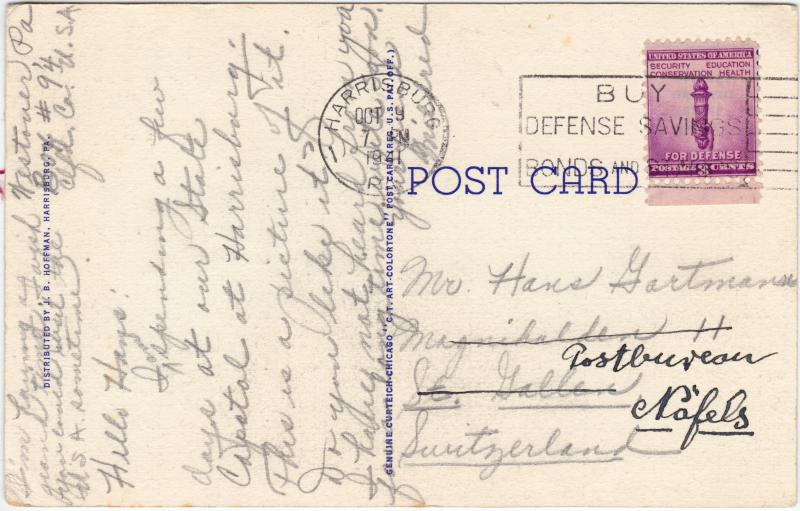 Westover Pa
Box # 94
Clfd. Co. U.S.A
Hello Hans:
Spending a few
days at our State
Capatol at Harrisburg.
This is a picture of it.
Do you like it?
I have not heard from you
for a long time
Your friend
Am having a
grand time. Wish
you could visit the
U.S.A. sometime
DISTRIBUTED BY J. B. HOFFMAN, HARRISBURG, PA.
GENUINE CURTEICH-CHICAGO "C. T. ART-COLORTONE" POST CARD (REG. U. S. PAT. OFF.)
HARRISBURG
OCT 9
1941
UNITED STATES OF AMERICA
SECURITY EDUCATION
CONSERVATION HEALTH
FOR DEFENSE
POSTAGE 3 CENTS
BUY
DEFENSE SAVINGS
BONDS AND
POST CARD
Mr. Hans Gartmann
Magnihalden 11
Postbureau
St. Gallen
Näfels
Switzerland